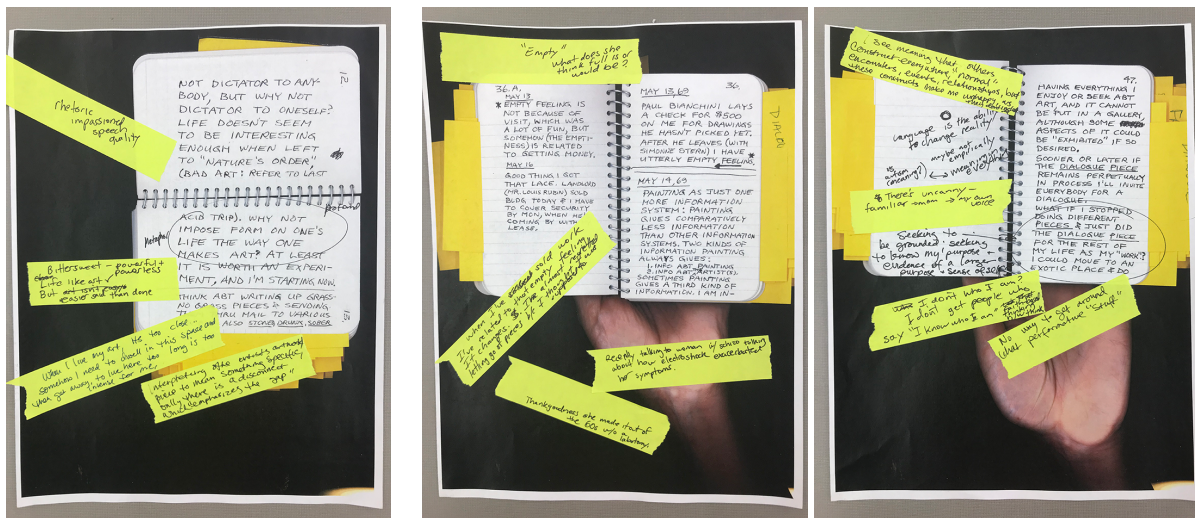 rhetoric
impassioned
speech
quality
12.
NOT DICTATOR TO ANY-
BODY, BUT WHY NOT
DICTATOR TO ONESELF?
LIFE DOESN'T SEEM
TO BE INTERESTING
ENOUGH WHEN LEFT
TO "NATURE'S ORDER"
(BAD ART: REFER TO LAST
ACID TRIP). WHY NOT
IMPOSE FORM ON ONE'S
LIFE THE WAY ONE
MAKES ART? AT LEAST
IT IS WORTH AN EXPERI-
MENT, AND I'M STARTING NOW.
THINK ABT WRITING UP GRASS-
NO GRASS PIECES & SENDING
MAIL TO VARIOUS
ALSO STONED, DRUNK, SOBER
13.
profound
Bittersweet - powerful +
powerless
Life like art
But
easier said than done
When I live my art, it's too close...
somehow I need to dwell in this space and
then get away, to live here too long is too
intense for me,
Interpretation of the artist's artwork
piece to mean something specific,
there is a disconnect
which "emphasizes the gap"
"Empty"
what does she
think full is or
would be?
36.A.
MAY 13
* EMPTY FEELING IS
NOT BECAUSE OF
VISIT, WHICH WAS
A LOT OF FUN, BUT
SOMEHOW (THE EMPTI-
NESS) IS RELATED
TO GETTING MONEY.
MAY 16
GOOD THING I GOT
THAT LACE. LANDLORD
(MR. LOUIS RUBIN) SOLD
BLDG. TODAY & I HAVE
TO COVER SECURITY
BY MON, WHEN HE'S
COMING BY WITH
LEASE.
36.
MAY 13, 69
PAUL BIANCHINI LAYS
A CHECK FOR $500
ON ME FOR DRAWINGS
HE HASN'T PICKED YET.
AFTER HE LEAVES (WITH
SIMONNE STERN) I HAVE *
UTTERLY EMPTY FEELING.
MAY 14, 69
PAINTING AS JUST ONE
MORE INFORMATION
SYSTEM: PAINTING
GIVES COMPARATIVELY
LESS INFORMATION
THAN OTHER INFORMATION
SYSTEMS. TWO KINDS OF
INFORMATION PAINTING
ALWAYS GIVES:
1. INFO ABT PAINTING
2. INFO ABT ARTIST(S).
SOMETIMES PAINTING
GIVES A THIRD KIND OF
INFORMATION. I AM IN-
DIALOG
When I've sold work
I've related to this empty feeling
Recently talking to woman w/ schizo talking
about how electroshock exacerbated
her symptoms.
Thankgoodness she made it out of
the 60s w/o a
lobotomy.
I see meaning that others
construct everywhere, "normal"
encounters, events, relationships, bad
these constructs make me
Language is the ability
to change reality
maybe not
empirically
meaning is
everywhere
is
autism
(uncanny?)
* There's uncanny -
familiar woman → my own
voice
Seeking to
be grounded, seeking
to know my 'purpose'
evidence of a larger
purpose - sense of self
47.
HAVING EVERYTHING I
ENJOY OR SEEK ABT
ART, AND IT CANNOT
BE PUT IN A GALLERY,
ALTHOUGH SOME
ASPECTS OF IT COULD
BE "EXHIBITED" IF SO
DESIRED.
SOONER OR LATER IF
THE DIALOGUE PIECE
REMAINS PERPETUALLY
IN PROCESS I'LL INVITE
EVERYBODY FOR A
DIALOGUE.
WHAT IF I STOPPED
DOING DIFFERENT
PIECES & JUST DID
THE DIALOGUE PIECE
FOR THE REST OF
MY LIFE AS MY "WORK"?
I COULD MOVE TO AN
EXOTIC PLACE & DO
I don't who I am?
I don't get people who
say "I know who I am"
No way to get around
what performative "stuff"